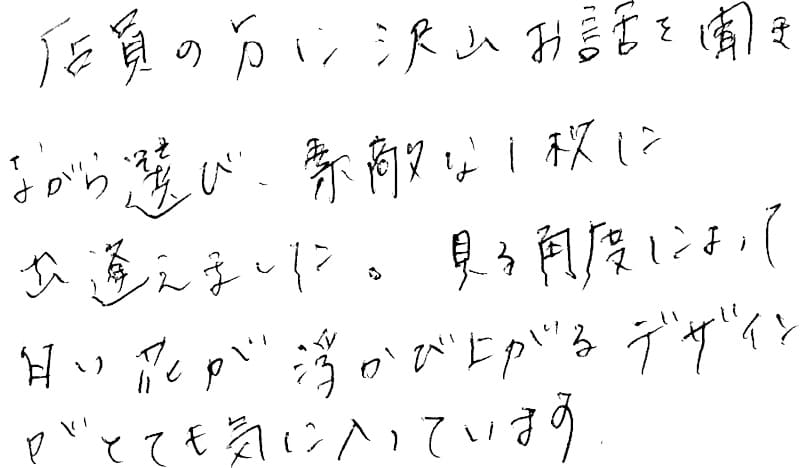 店員の方に沢山お話を聞き
ながら選び、素敵な1枚に
出逢えました。見る角度によって
白い花が浮かび上がるデザイン
がとても気に入っています